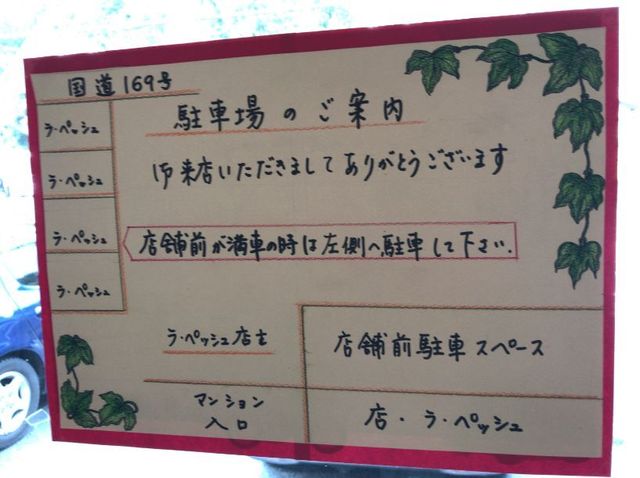 国道169号
駐車場のご案内
ラ・ペッシュ
ラ・ペッシュ
ラ・ペッシュ
ラ・ペッシュ
御来店いただきましてありがとうございます
店舗前が満車の時は左側へ駐車して下さい.
ラ・ペッシュ店主
店舗前駐車スペース
マンション
入口
店・ラ・ペッシュ